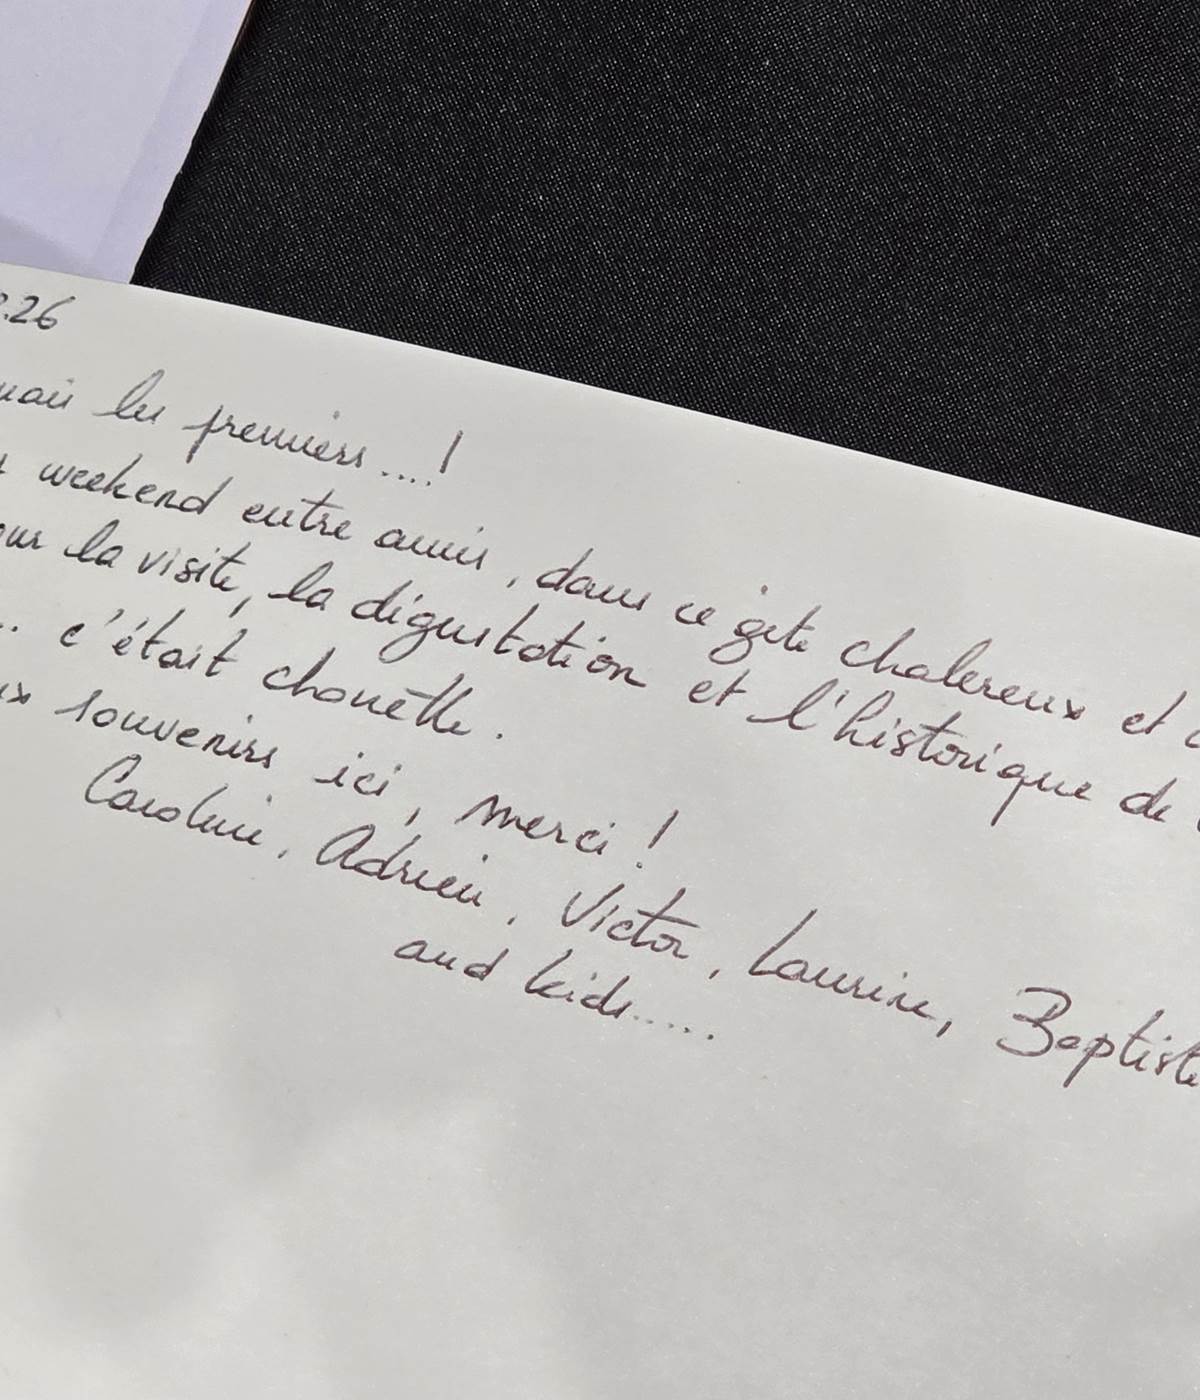 .26
les premiers....!
weekend entre amis, dans ce gîte chalereux et
la visite, la dégustation et l'historique de
.. c'était chouette.
souvenirs ici, merci!
Caroline, Adrien, Victor, Laurine, Baptiste
and kids.....